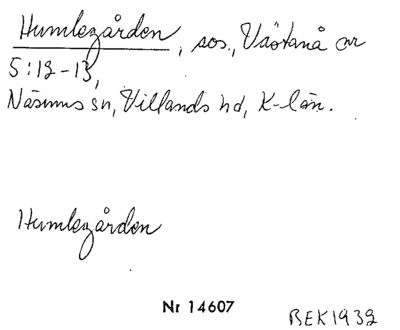 Humlegården, sos., Västanå ar
5:12-13,
Näsums sn, Villands hd, K-län.
Humlegården
Nr 14607
BEK1932